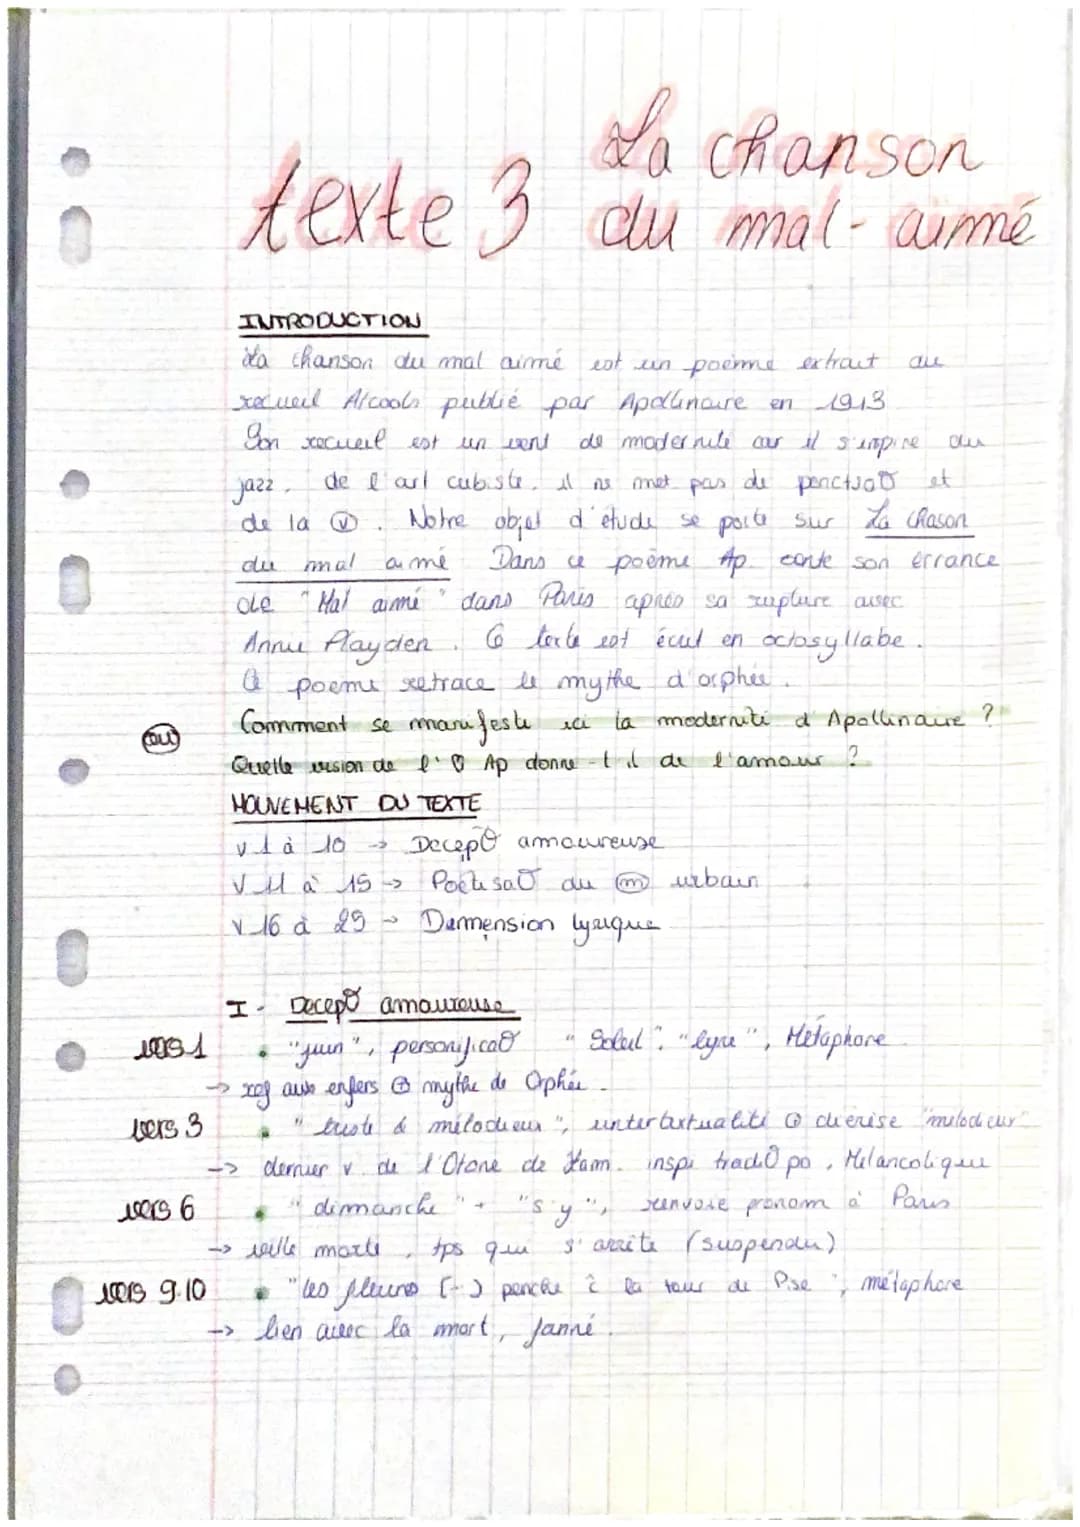 texte 3 La chanson
du mal-aimé
INTRODUCTION
La chanson du mal aimé est un poème extrait au
recueil Alcools publié par Apollinaire en 1913
Son recueil est un vent de modernité car il s'inspire du
jazz, de l'art cubiste. il ne met pas de ponctuat° et
de la Ⓥ. Notre objet d'étude se porte sur La Chason
du mal aimé Dans ce poème Ap. conte son errance
de "Mal aimé" dans Paris après sa rupture avec
Annie Playden. Ce texte est écrit en octosyllabe.
Ce poème retrace le mythe d'orphée.
Comment se manifeste ici la modernité d'Apollinaire ?
ou
Quelle vision de l' Ap donne-t-il de l'amour ?
MOUVEMENT DU TEXTE
v 1 à 10 -> Decept° amoureuse
V 11 à 15 -> Poétisat° du ⓜ urbain
V 16 à 25 -> Dammension lyrique
I - Decept° amoureuse
vers 1 • "juin", personificat° "Soleil". "lyre", Métaphore.
-> ref aux enfers ⊕ mythe de Orphée.
vers 3 • "triste & mélodieux", intertextualité ⊕ diérèse "mélodieux"
-> dernier v. de l'Otone de Lam. inspi tradi° po, Mélancolique
vers 6 • "dimanche" + "s'y", renvoie pronom à Paris
-> ville morte, tps qui s'arrête (suspendu)
vers 9.10 • "les fleurs (-) penche ĉ la tour de Pise", métaphore
-> lien avec la mort, fanné.